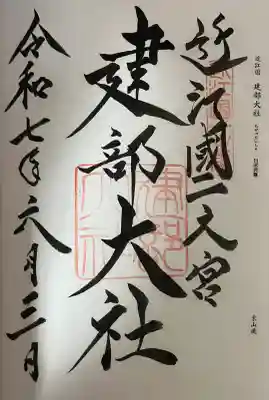 近江國一之宮
建部大社
令和七年六月三日
近江国 建部大社
東山道